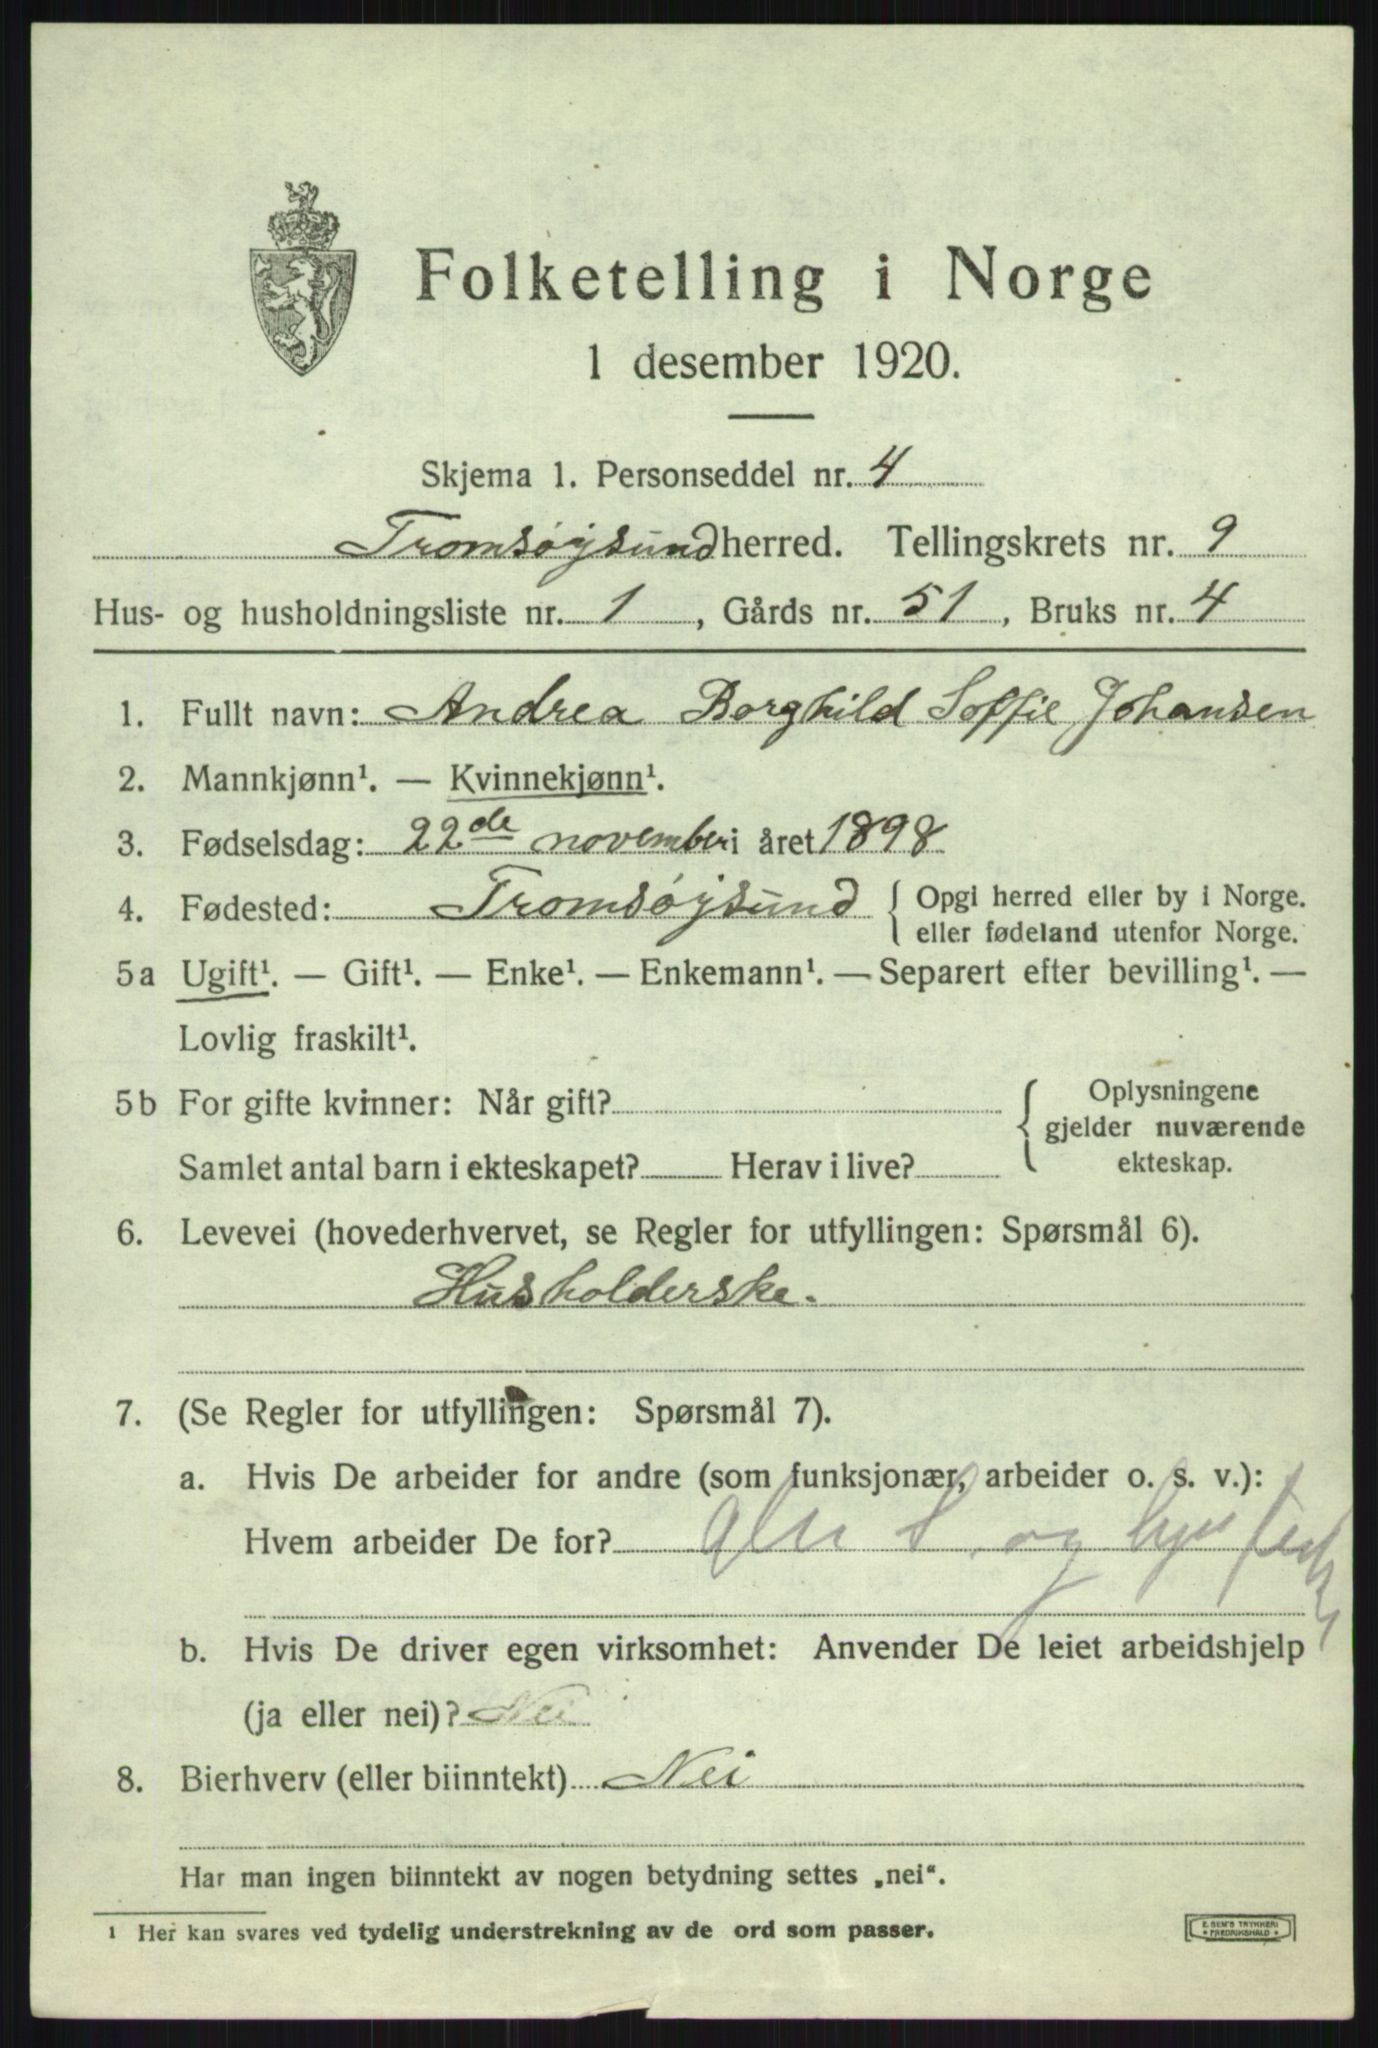 Folketelling i Norge
1 desember 1920.
Skjema 1. Personseddel nr. 4
Tromsøjsund herred. Tellingskrets nr. 9
Hus- og husholdningsliste nr. 1, Gårds nr. 51, Bruks nr. 4
1. Fullt navn: Andrea Borghild Soffie Johansen
2. Mannkjønn¹. — Kvinnekjønn¹.
3. Fødselsdag: 22de november i året 1898
4. Fødested: Tromsøjsund { Opgi herred eller by i Norge.
eller fødeland utenfor Norge.
5a Ugift¹. — Gift¹. — Enke¹. — Enkemann¹. — Separert efter bevilling¹. —
Lovlig fraskilt¹.
5b For gifte kvinner: Når gift?
Samlet antal barn i ekteskapet? Herav i live?
Oplysningene
gjelder nuværende
ekteskap.
6. Levevei (hovederhvervet, se Regler for utfyllingen: Spørsmål 6).
Husholderske.
7. (Se Regler for utfyllingen: Spørsmål 7).
a. Hvis De arbeider for andre (som funksjonær, arbeider o. s. v.):
Hvem arbeider De for? og
b. Hvis De driver egen virksomhet: Anvender De leiet arbeidshjelp
(ja eller nei)? Nei
8. Bierhverv (eller biinntekt) Nei
Har man ingen biinntekt av nogen betydning settes „nei“.
1 Her kan svares ved tydelig understrekning av de ord som passer.
E. SEM'S TRYKKERI
* FREDRIKSHALD *